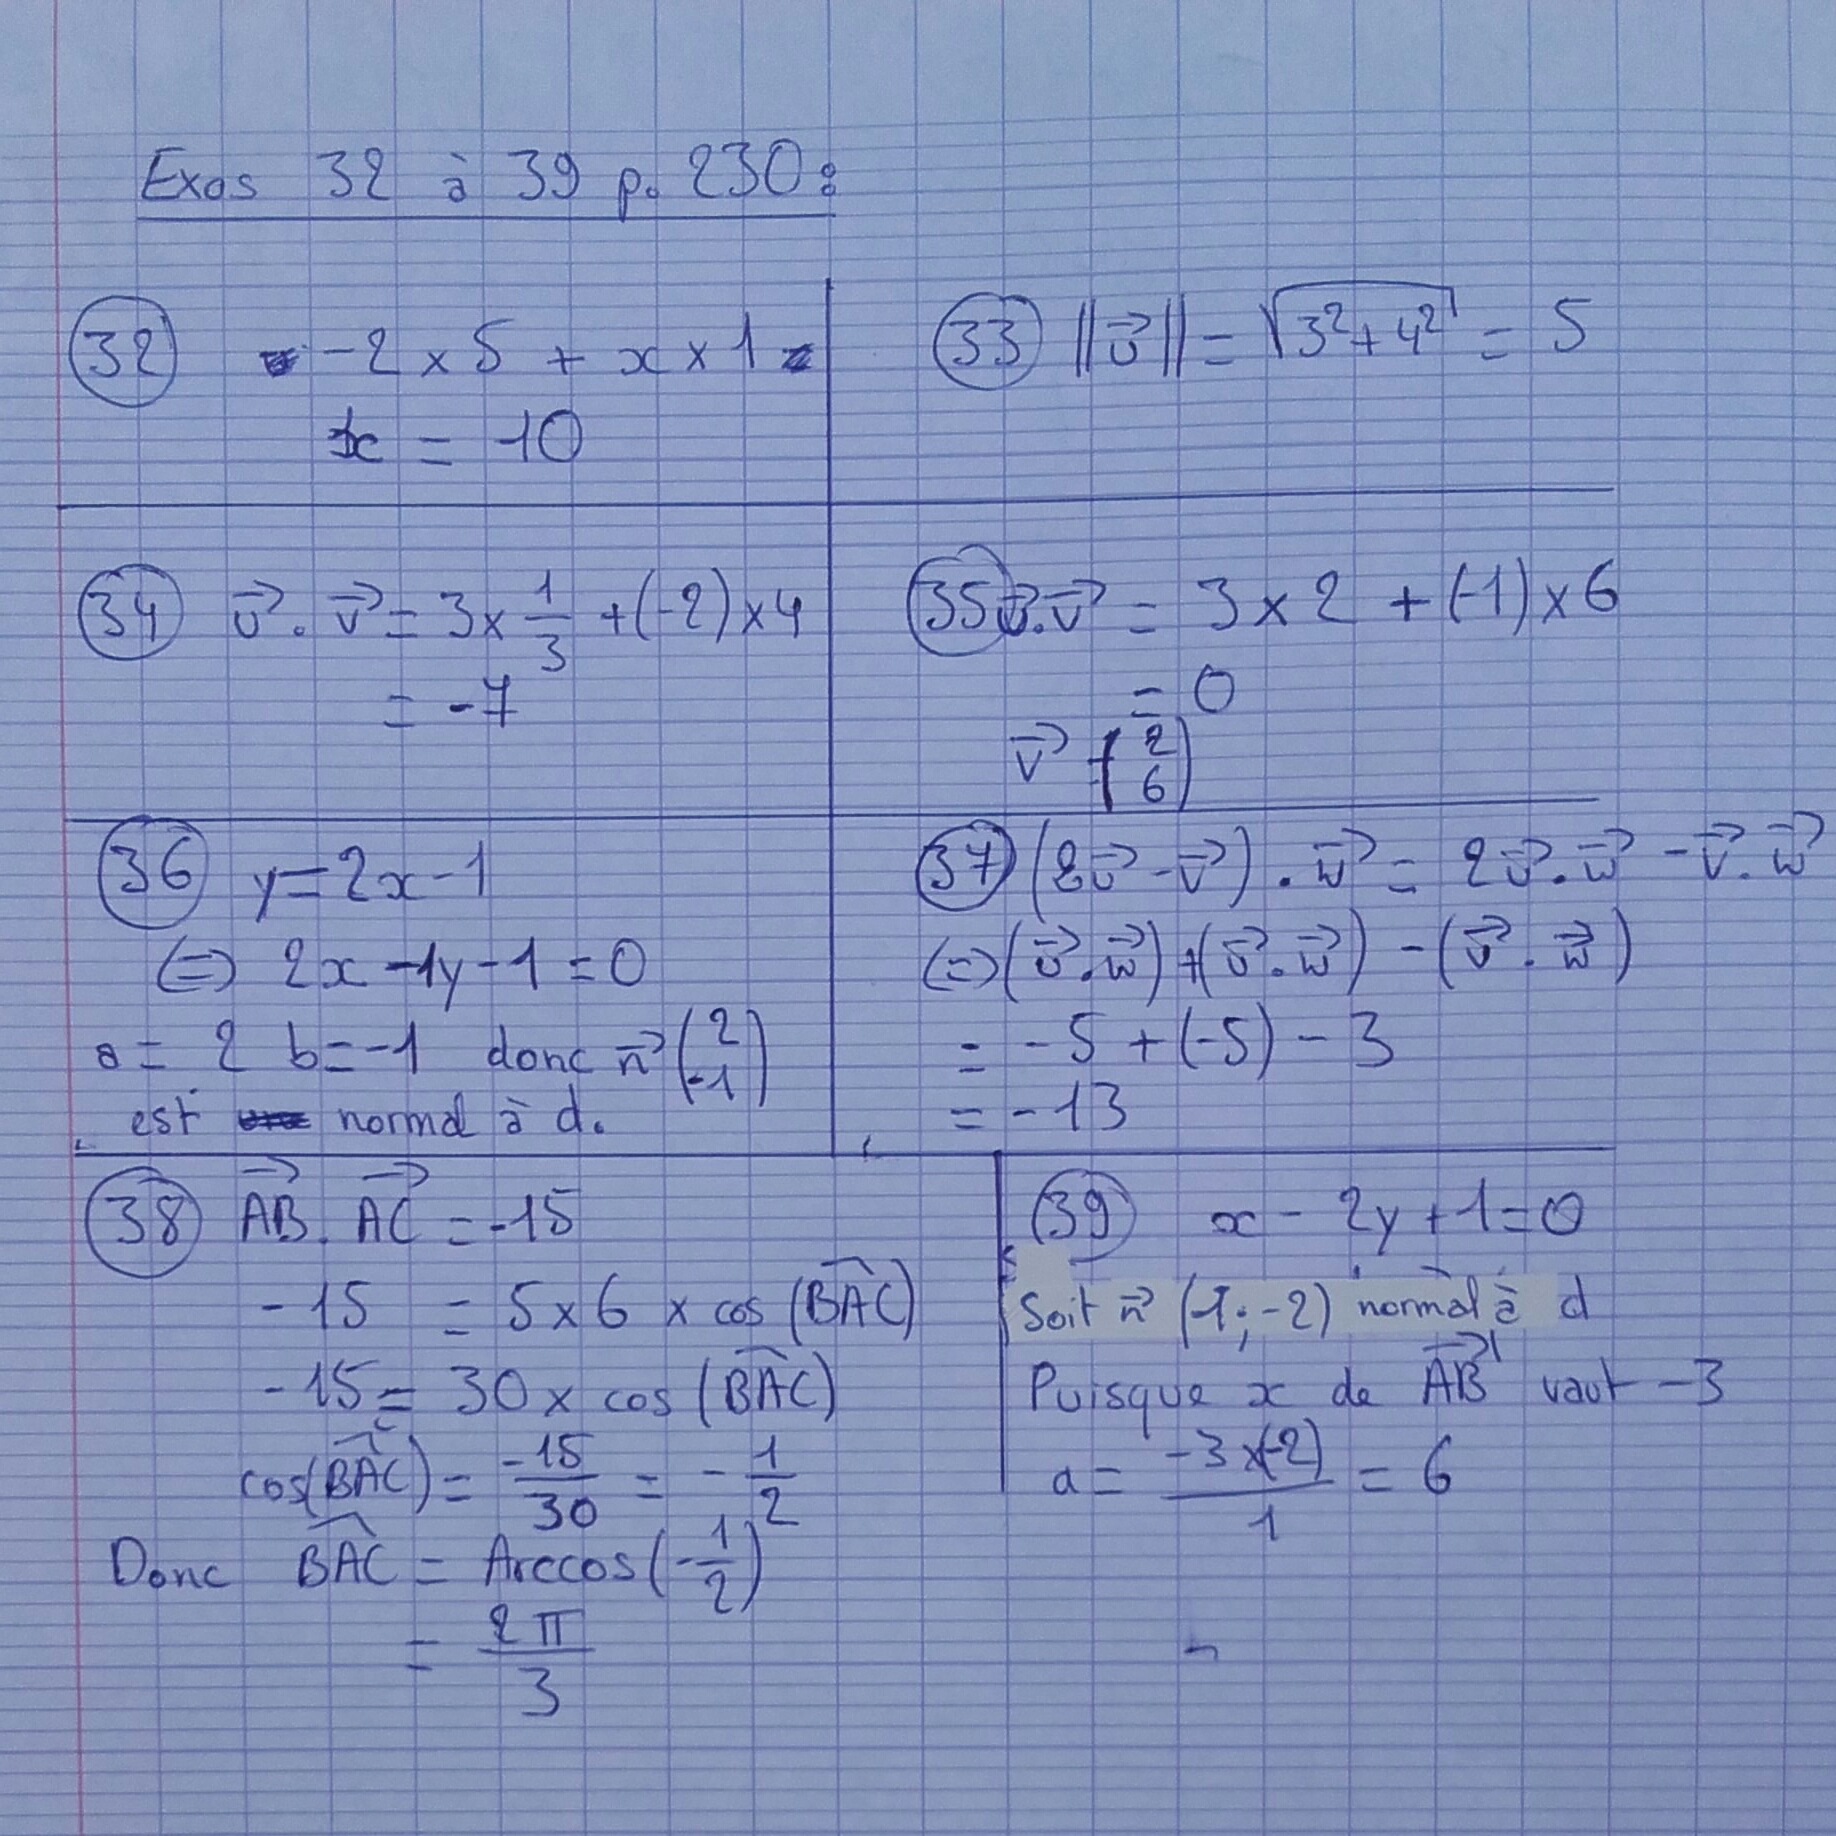 Exos 32 à 39 p. 230:
32 -2 × 5 + x × 1
x = 10
33 ||u⃗|| = √(3²+4²) = 5
34 u⃗ . v⃗ = 3 × 1/3 + (-2) × 4
= -7
35 u⃗ . v⃗ = 3 × 2 + (-1) × 6
= 0
v⃗ (2 6)
36 y = 2x - 1
(=) 2x - 1y - 1 = 0
a = 2 b = -1 donc n⃗ (2 -1)
est normal à d.
37 (2u⃗ - v⃗) . w⃗ = 2u⃗ . w⃗ - v⃗ . w⃗
(=) (u⃗ . w⃗) + (u⃗ . w⃗) - (v⃗ . w⃗)
= -5 + (-5) - 3
= -13
38 AB⃗ . AC⃗ = -15
-15 = 5 × 6 × cos (BAC)
-15 = 30 × cos (BAC)
cos(BAC) = -15/30 = -1/2
Donc BAC = Arccos(-1/2)
= 2π/3
39 x - 2y + 1 = 0
Soit n⃗ (1; -2) normal à d
Puisque x de AB⃗ vaut -3
a = -3×(-2)/1 = 6